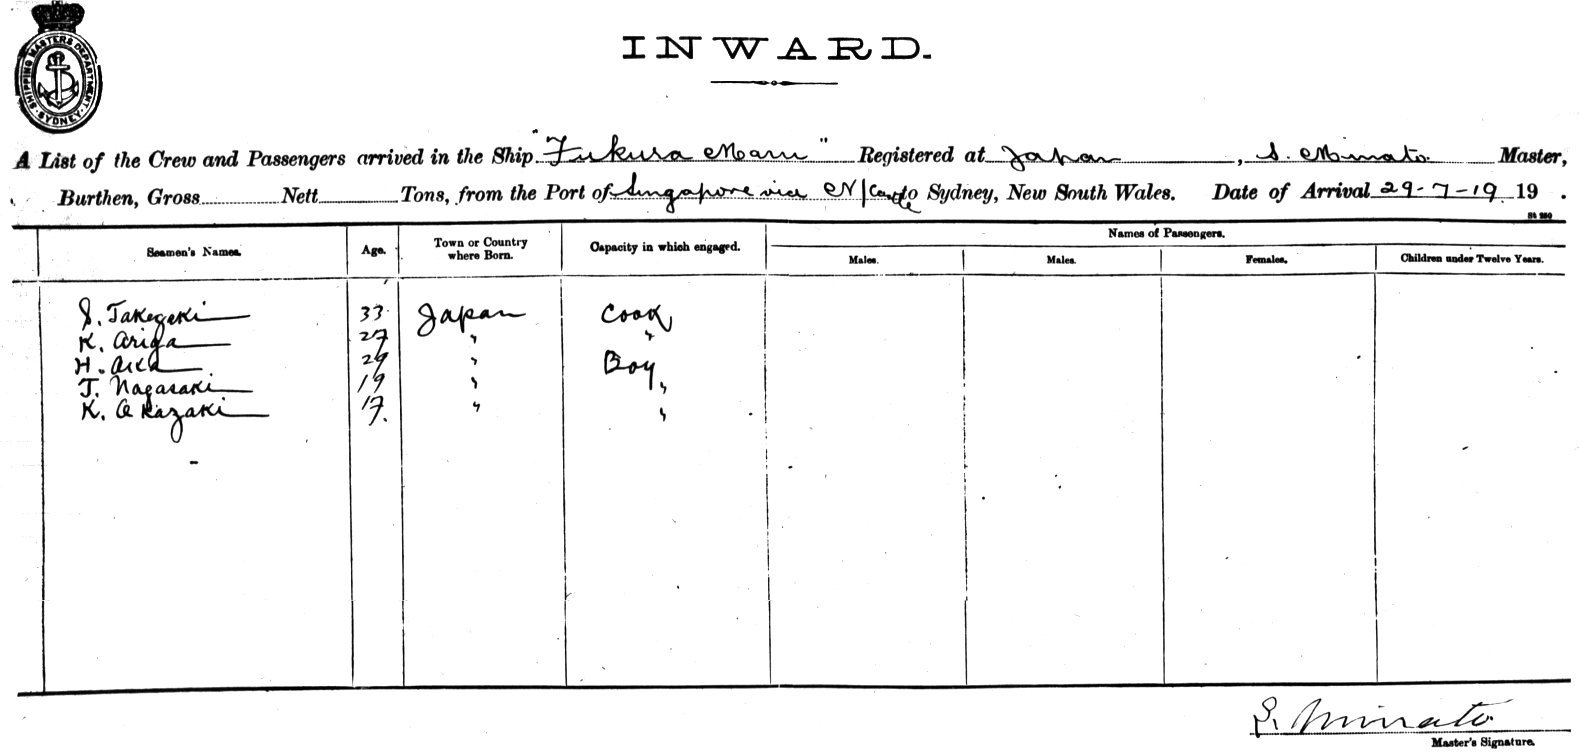 SHIPPING MASTERS DEPARTMENT. SYDNEY.
INWARD.
A List of the Crew and Passengers arrived in the Ship "Fukura Maru" Registered at Japan, S. Minato Master,
Burthen, Gross Nett Tons, from the Port of Singapore via N/Castle to Sydney, New South Wales. Date of Arrival 29-7-19 19 .
St 250
Seamen's Names. Age. Town or Country where Born. Capacity in which engaged. Names of Passengers.
Males. Males. Females. Children under Twelve Years.
S. Takegeki 33 Japan Cook
K. Ariga 27 " "
H. 29 " Boy
T. Nagasaki 19 " "
K. Okazaki 17 " "
S. Minato
Master's Signature.